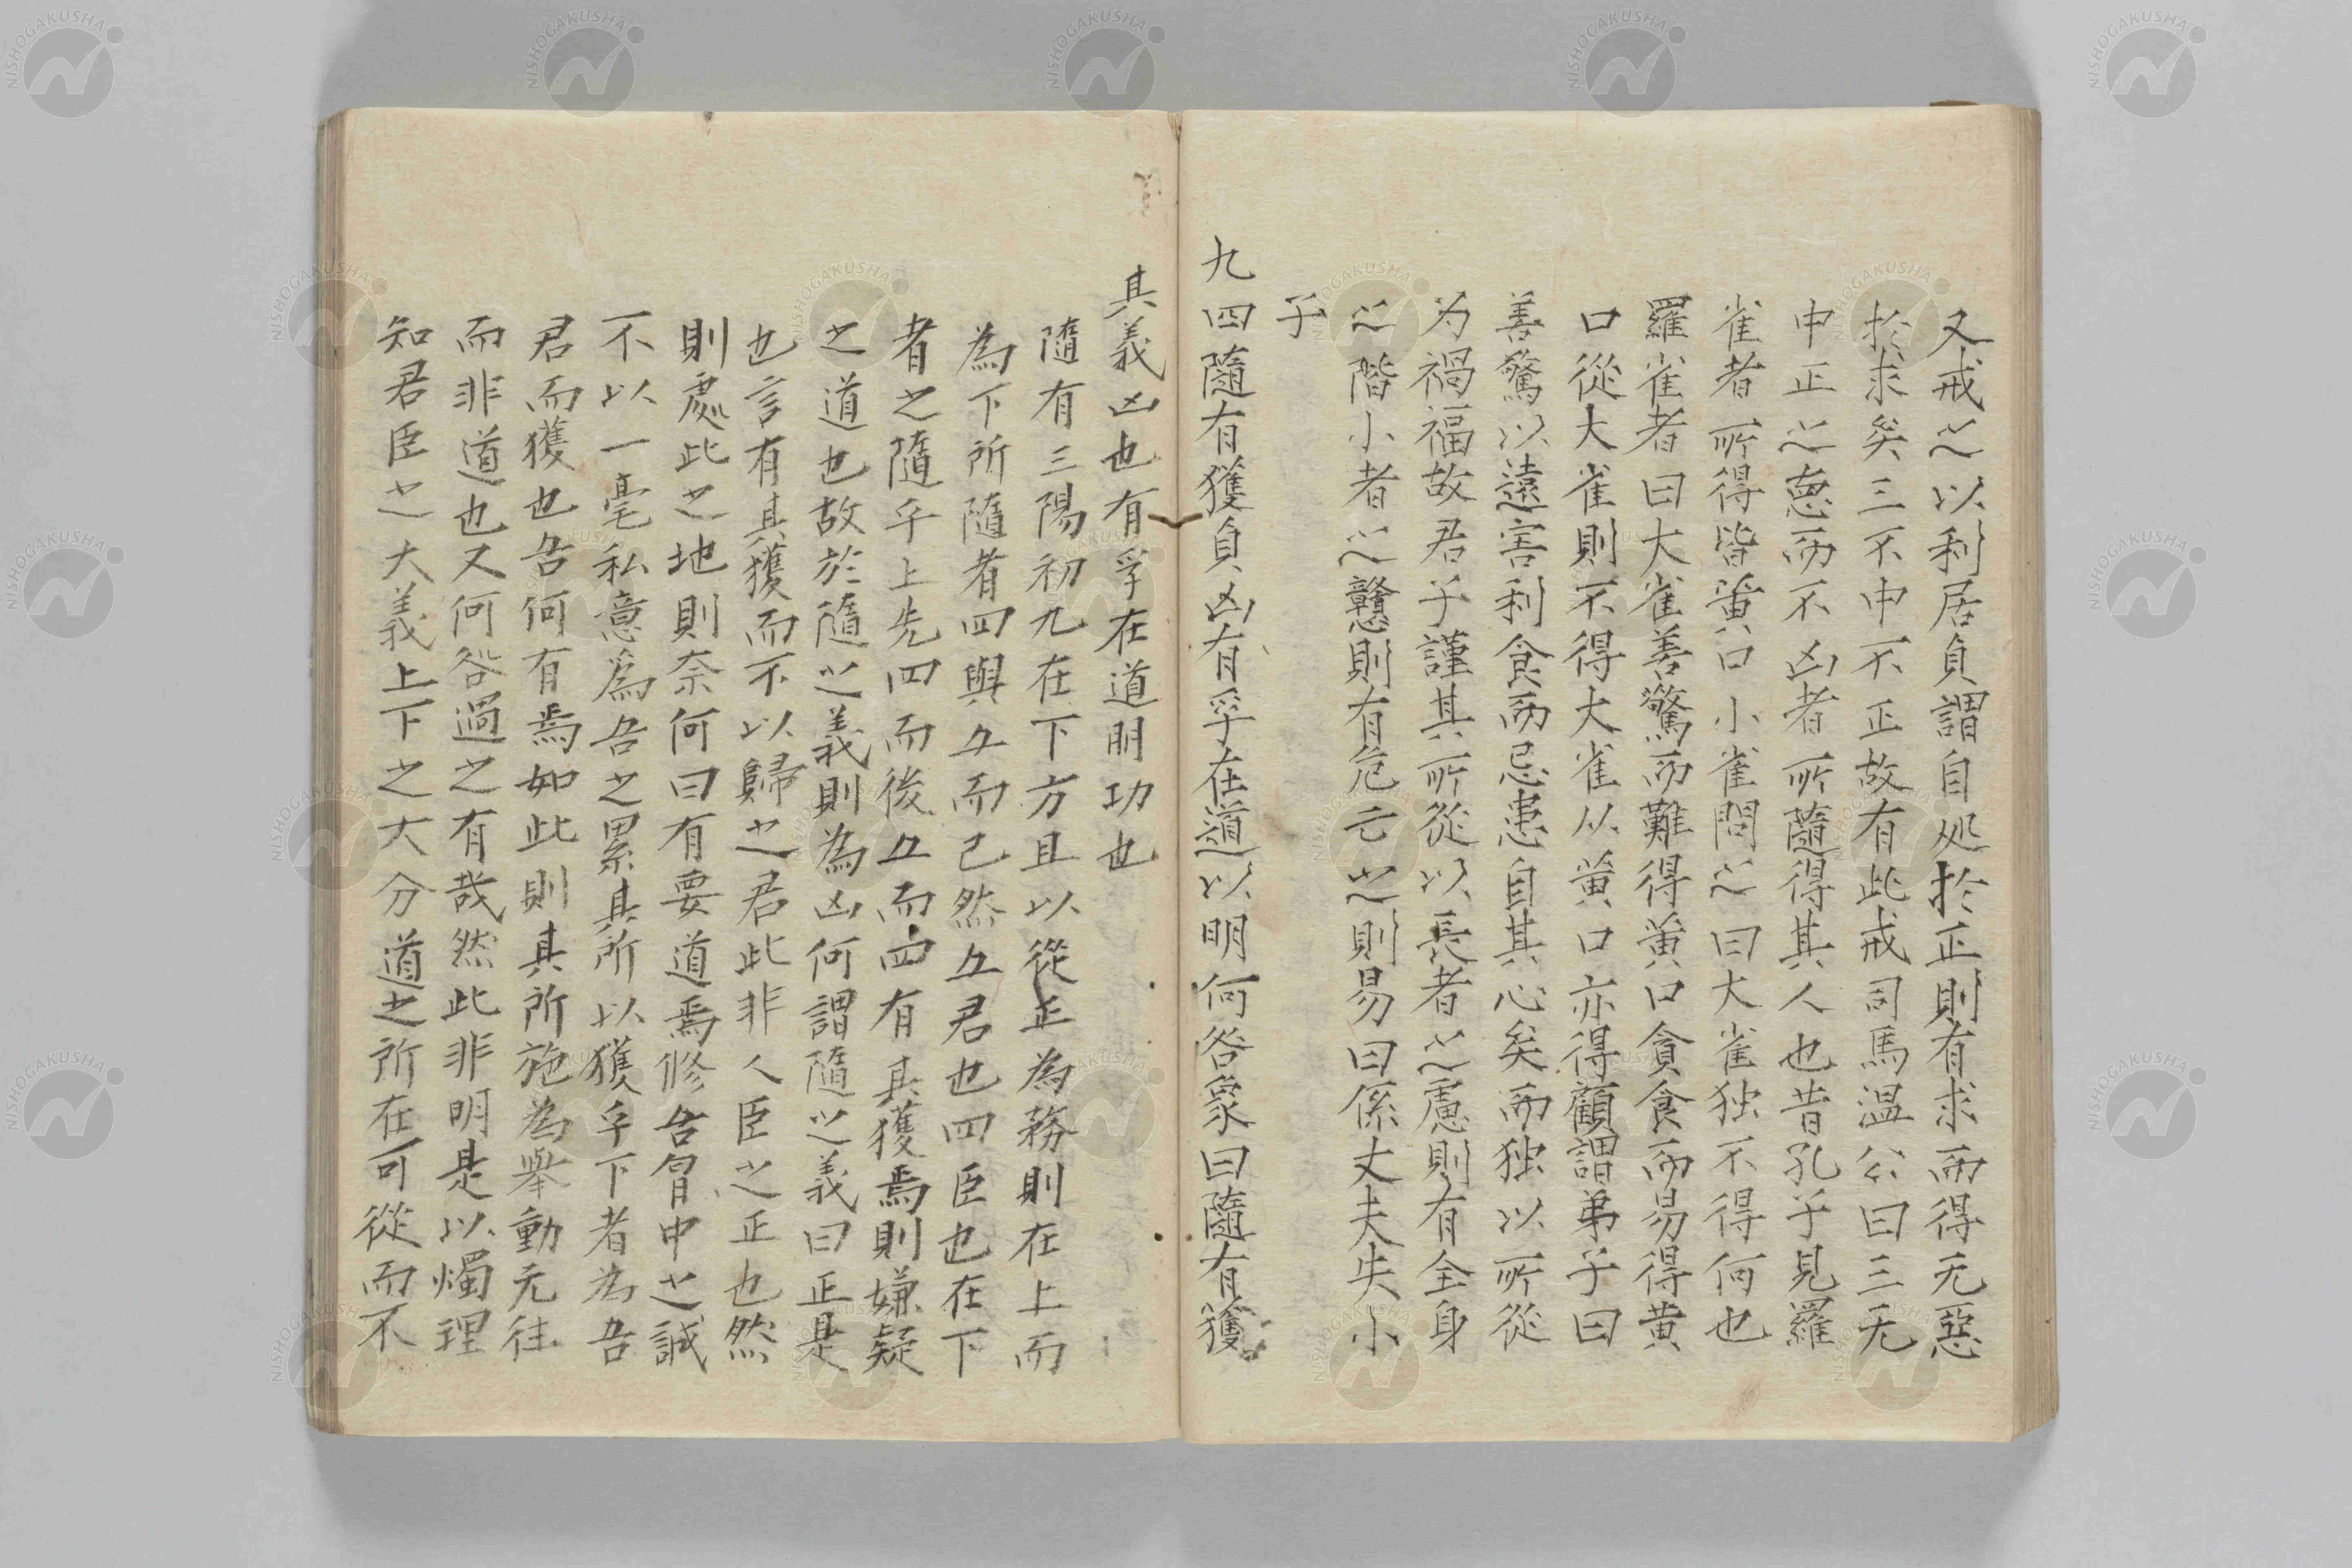 又戒之以利居貞謂自処於正則有求而得无惡
於求矣三不中不正故有此戒司馬温公曰三无
中正之悳而不凶者所隨得其人也昔孔子見羅
雀者所得皆黄口小雀問之曰大雀独不得何也
羅雀者曰大雀善驚而難得黄口貪食而易得黄
口從大雀則不得大雀从黄口亦得顧謂弟子曰
善驚以遠害利食而忌患自其心矣而独以所從
为禍福故君子謹其所從以長者之慮則有全身
之階小者之戇則有危亡之則易曰係丈夫失小
子
九四隨有獲貞凶有孚在道以明何咎象曰隨有獲
其義凶也有孚在道明功也
隨有三陽初九在下方且以從正為務則在上而
為下所隨者四與五而已然五君也四臣也在下
者之隨乎上先四而後五而四有其獲焉則嫌疑
之道也故於隨之義則為凶何謂隨之義曰正是
也言有其獲而不以歸之君此非人臣之正也然
則處此之地則奈何曰有要道焉修吾胷中之誠
不以一毫私意爲吾之累其所以獲乎下者為吾
君而獲也吾何有焉如此則其所施為舉動无往
而非道也又何咎過之有哉然此非明是以燭理
知君臣之大義上下之大分道之所在可從而不